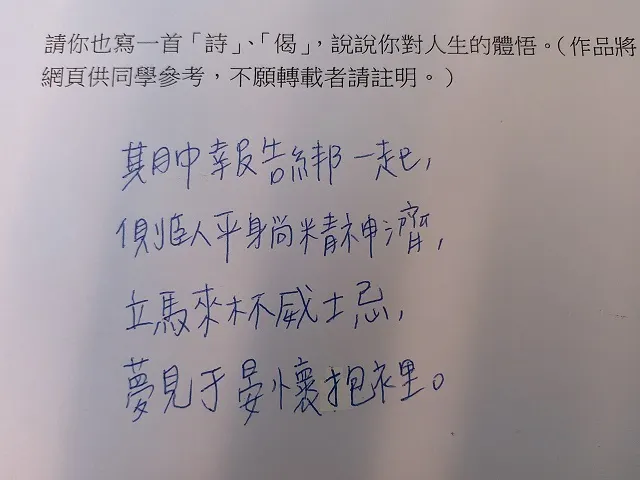 請你也寫一首「詩」、「偈」，說說你對人生的體悟。（作品將
網頁供同學參考，不願轉載者請註明。）
期中報告綁一起，
側臥人平身尚精神濟，
立馬來杯威士忌，
夢見于晏懷抱裡。